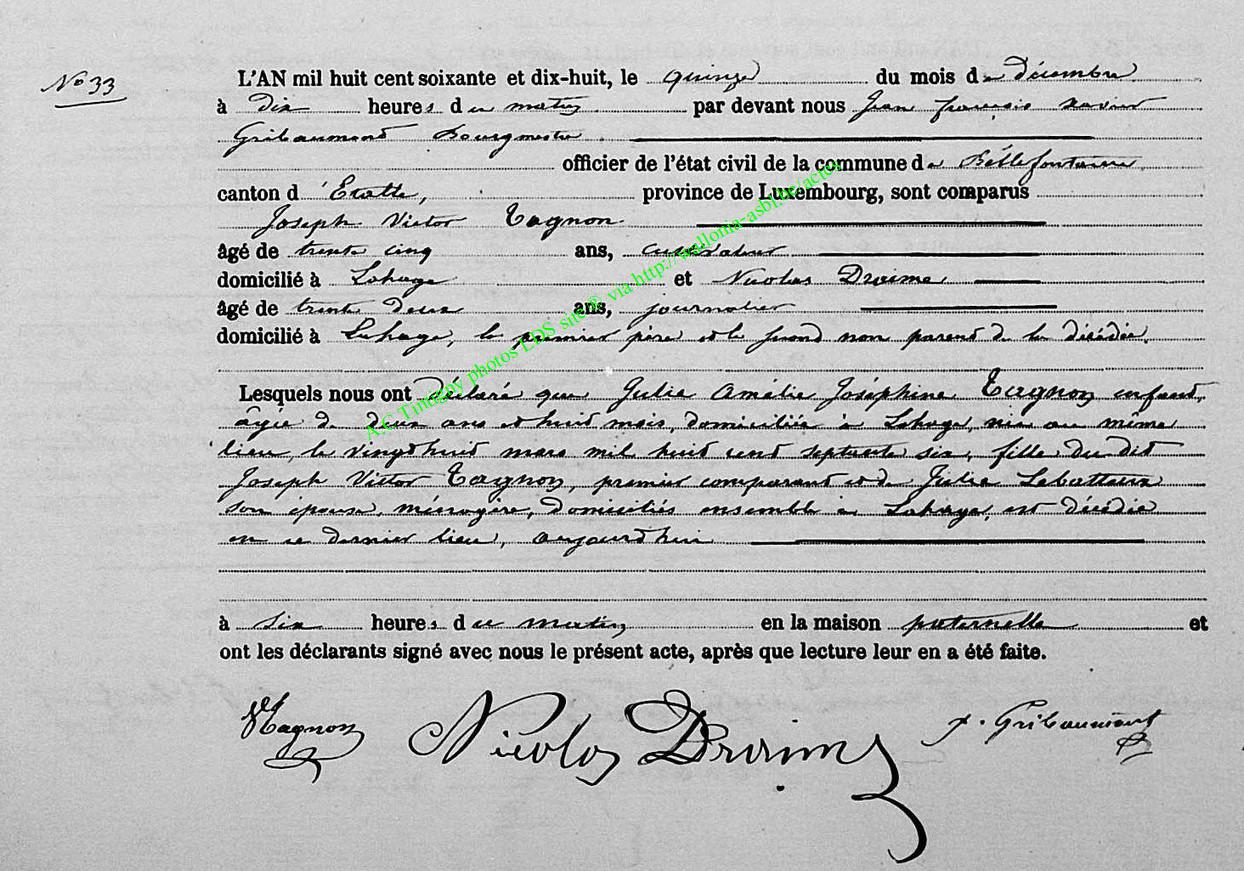 No 33
L'AN mil huit cent soixante et dix-huit, le quinze du mois de décembre
à dix heures du matin par devant nous Jean françois xavier
Gribaumont Bourgmestre
officier de l'état civil de la commune de Bellefontaine
canton d'Etalle, province de Luxembourg, sont comparus
Joseph Victor Tagnon
âgé de trente cinq ans, cultivateur
domicilié à Lahage et Nicolas Draime
âgé de trente deux ans, journalier
domicilié à Lahage, le premier père et le second non parent de la décédée.
Lesquels nous ont déclaré que Julie Amélie Joséphine Tagnon enfant,
âgée de deux ans et huit mois, domiciliée à Lahage, née au même
lieu, le vingt huit mars mil huit cent septante six, fille du dit
Joseph Victor Tagnon, premier comparant et de Julie
son épouse, ménagère, domiciliés ensemble à Lahage, est décédée
en ce dernier lieu, aujourd'hui
à six heures du matin en la maison paternelle et
ont les déclarants signé avec nous le présent acte, après que lecture leur en a été faite.
VTagnon Nicolas Draime x. Gribaumont
A.C Tintigny photos LDS site ® via http://wallonia-asbl.be/actes